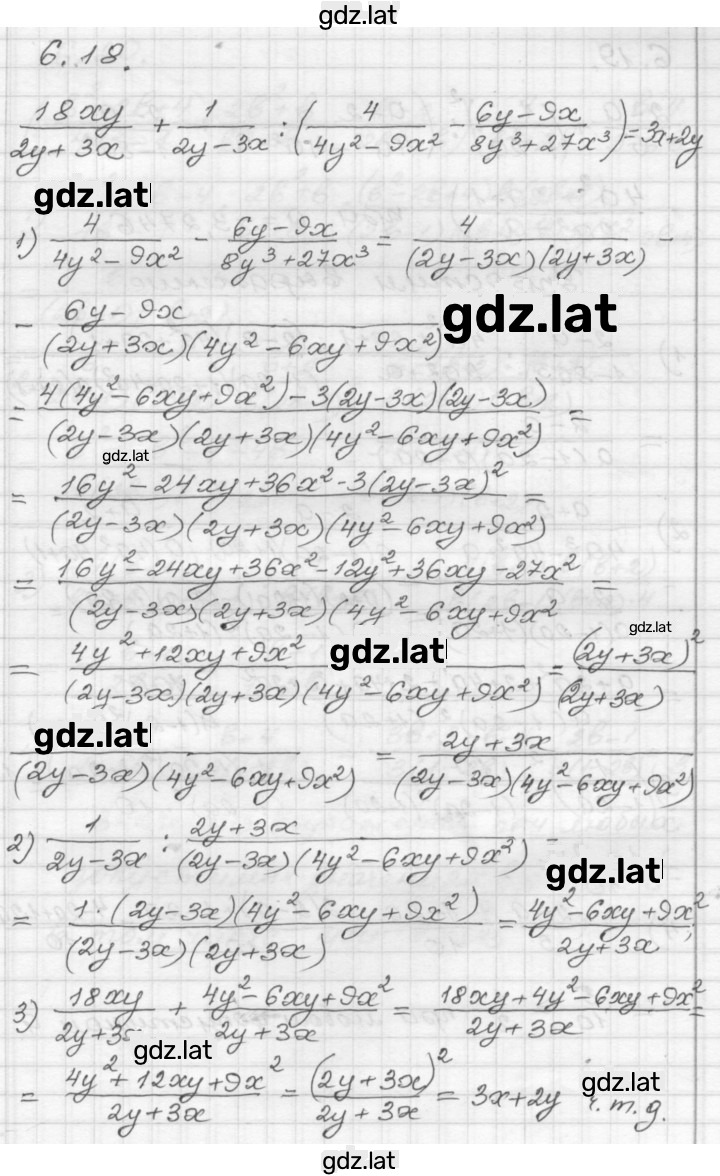 gdz.lat
6.18.
18xy/(2y+3x) + 1/(2y-3x) : (4/(4y²-9x²) - (6y-9x)/(8y³+27x³)) = 3x+2y
gdz.lat
1) 4/(4y²-9x²) - (6y-9x)/(8y³+27x³) = 4/((2y-3x)(2y+3x)) -
- (6y-9x)/((2y+3x)(4y²-6xy+9x²)) gdz.lat
= (4(4y²-6xy+9x²)-3(2y-3x)(2y-3x))/((2y-3x)(2y+3x)(4y²-6xy+9x²)) =
gdz.lat
= (16y²-24xy+36x²-3(2y-3x)²)/((2y-3x)(2y+3x)(4y²-6xy+9x²)) =
= (16y²-24xy+36x²-12y²+36xy-27x²)/((2y-3x)(2y+3x)(4y²-6xy+9x² =
gdz.lat
= (4y²+12xy+9x²)/((2y-3x)(2y+3x)(4y²-6xy+9x²)) gdz.lat = (2y+3x)²/(2y+3x)
gdz.lat /((2y-3x)(4y²-6xy+9x²)) = (2y+3x)/((2y-3x)(4y²-6xy+9x²))
2) 1/(2y-3x) : (2y+3x)/((2y-3x)(4y²-6xy+9x²)) =
gdz.lat
= (1·(2y-3x)(4y²-6xy+9x²))/((2y-3x)(2y+3x)) = (4y²-6xy+9x²)/(2y+3x);
3) 18xy/(2y+3x) + (4y²-6xy+9x²)/(2y+3x) = (18xy+4y²-6xy+9x²)/(2y+3x) =
gdz.lat
= (4y²+12xy+9x²)/(2y+3x) = (2y+3x)²/(2y+3x) = 3x+2y ч.т.д.
gdz.lat
gdz.lat